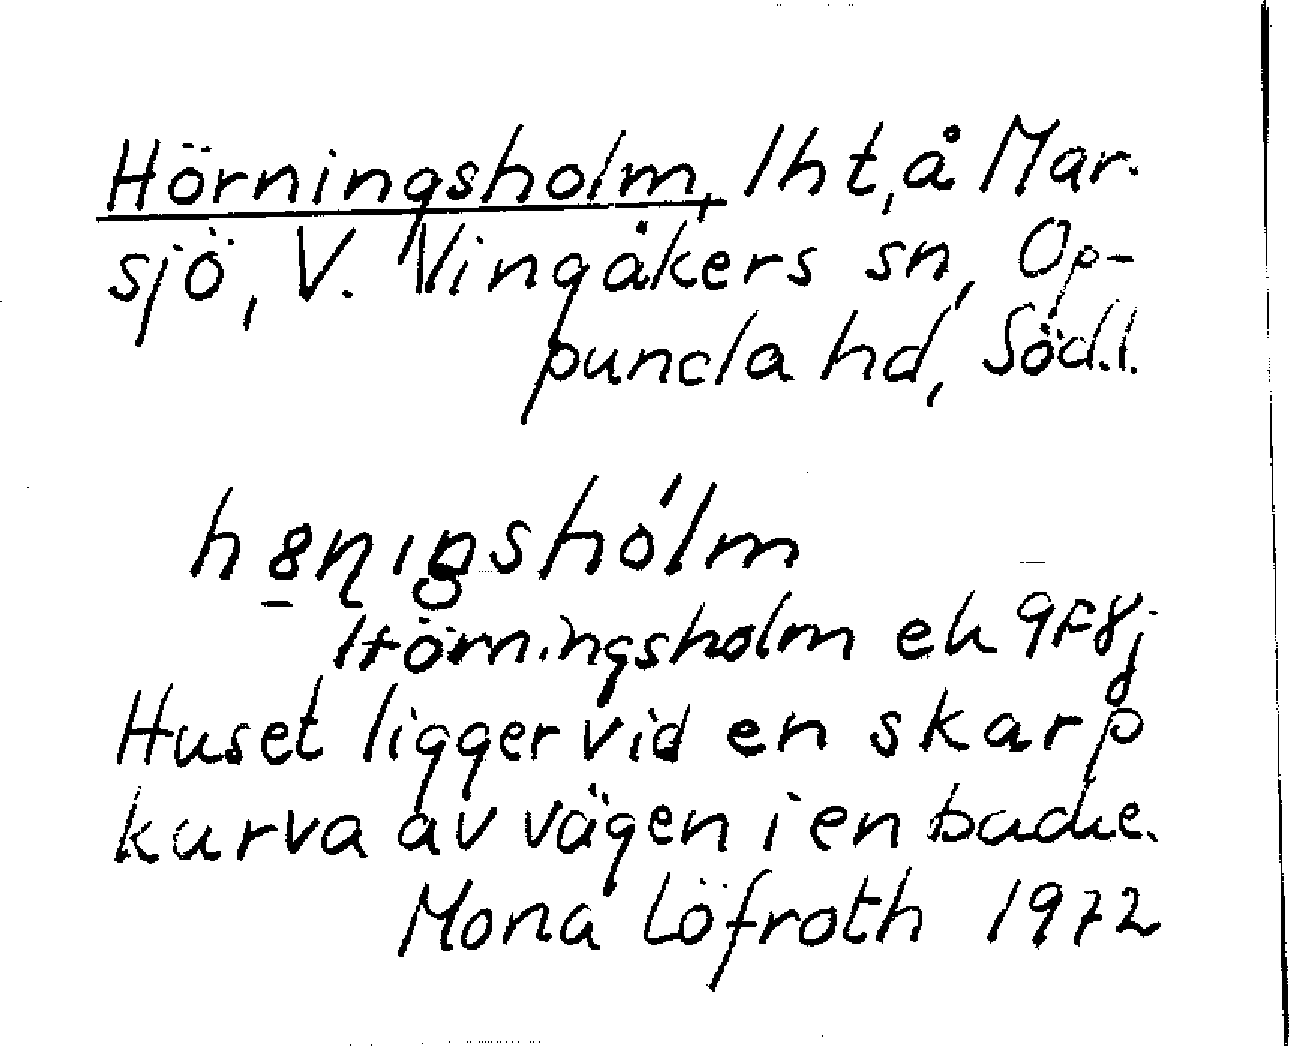 Hörningsholm, lht, å Mar-
sjö, V. Vingåkers sn, Op-
punda hd, Södl.
Hörningsholm ek 9F8j
Huset ligger vid en skarp
kurva av vägen i en backe.
Mona Löfroth 1972